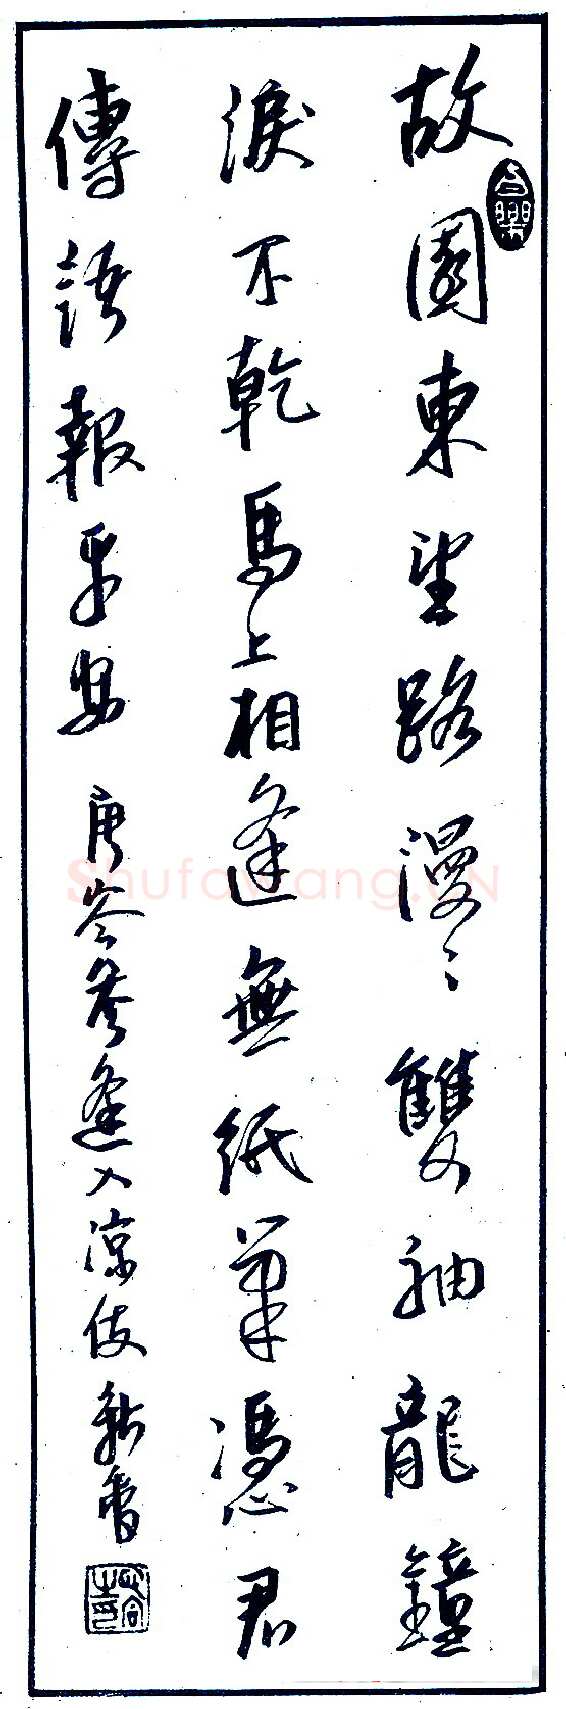 故園東望路漫〻雙袖龍鐘
淚不乾馬上相逢無紙筆憑君
傳語報平安 唐岑參逢入涼伎 新會
Shufawang.CN